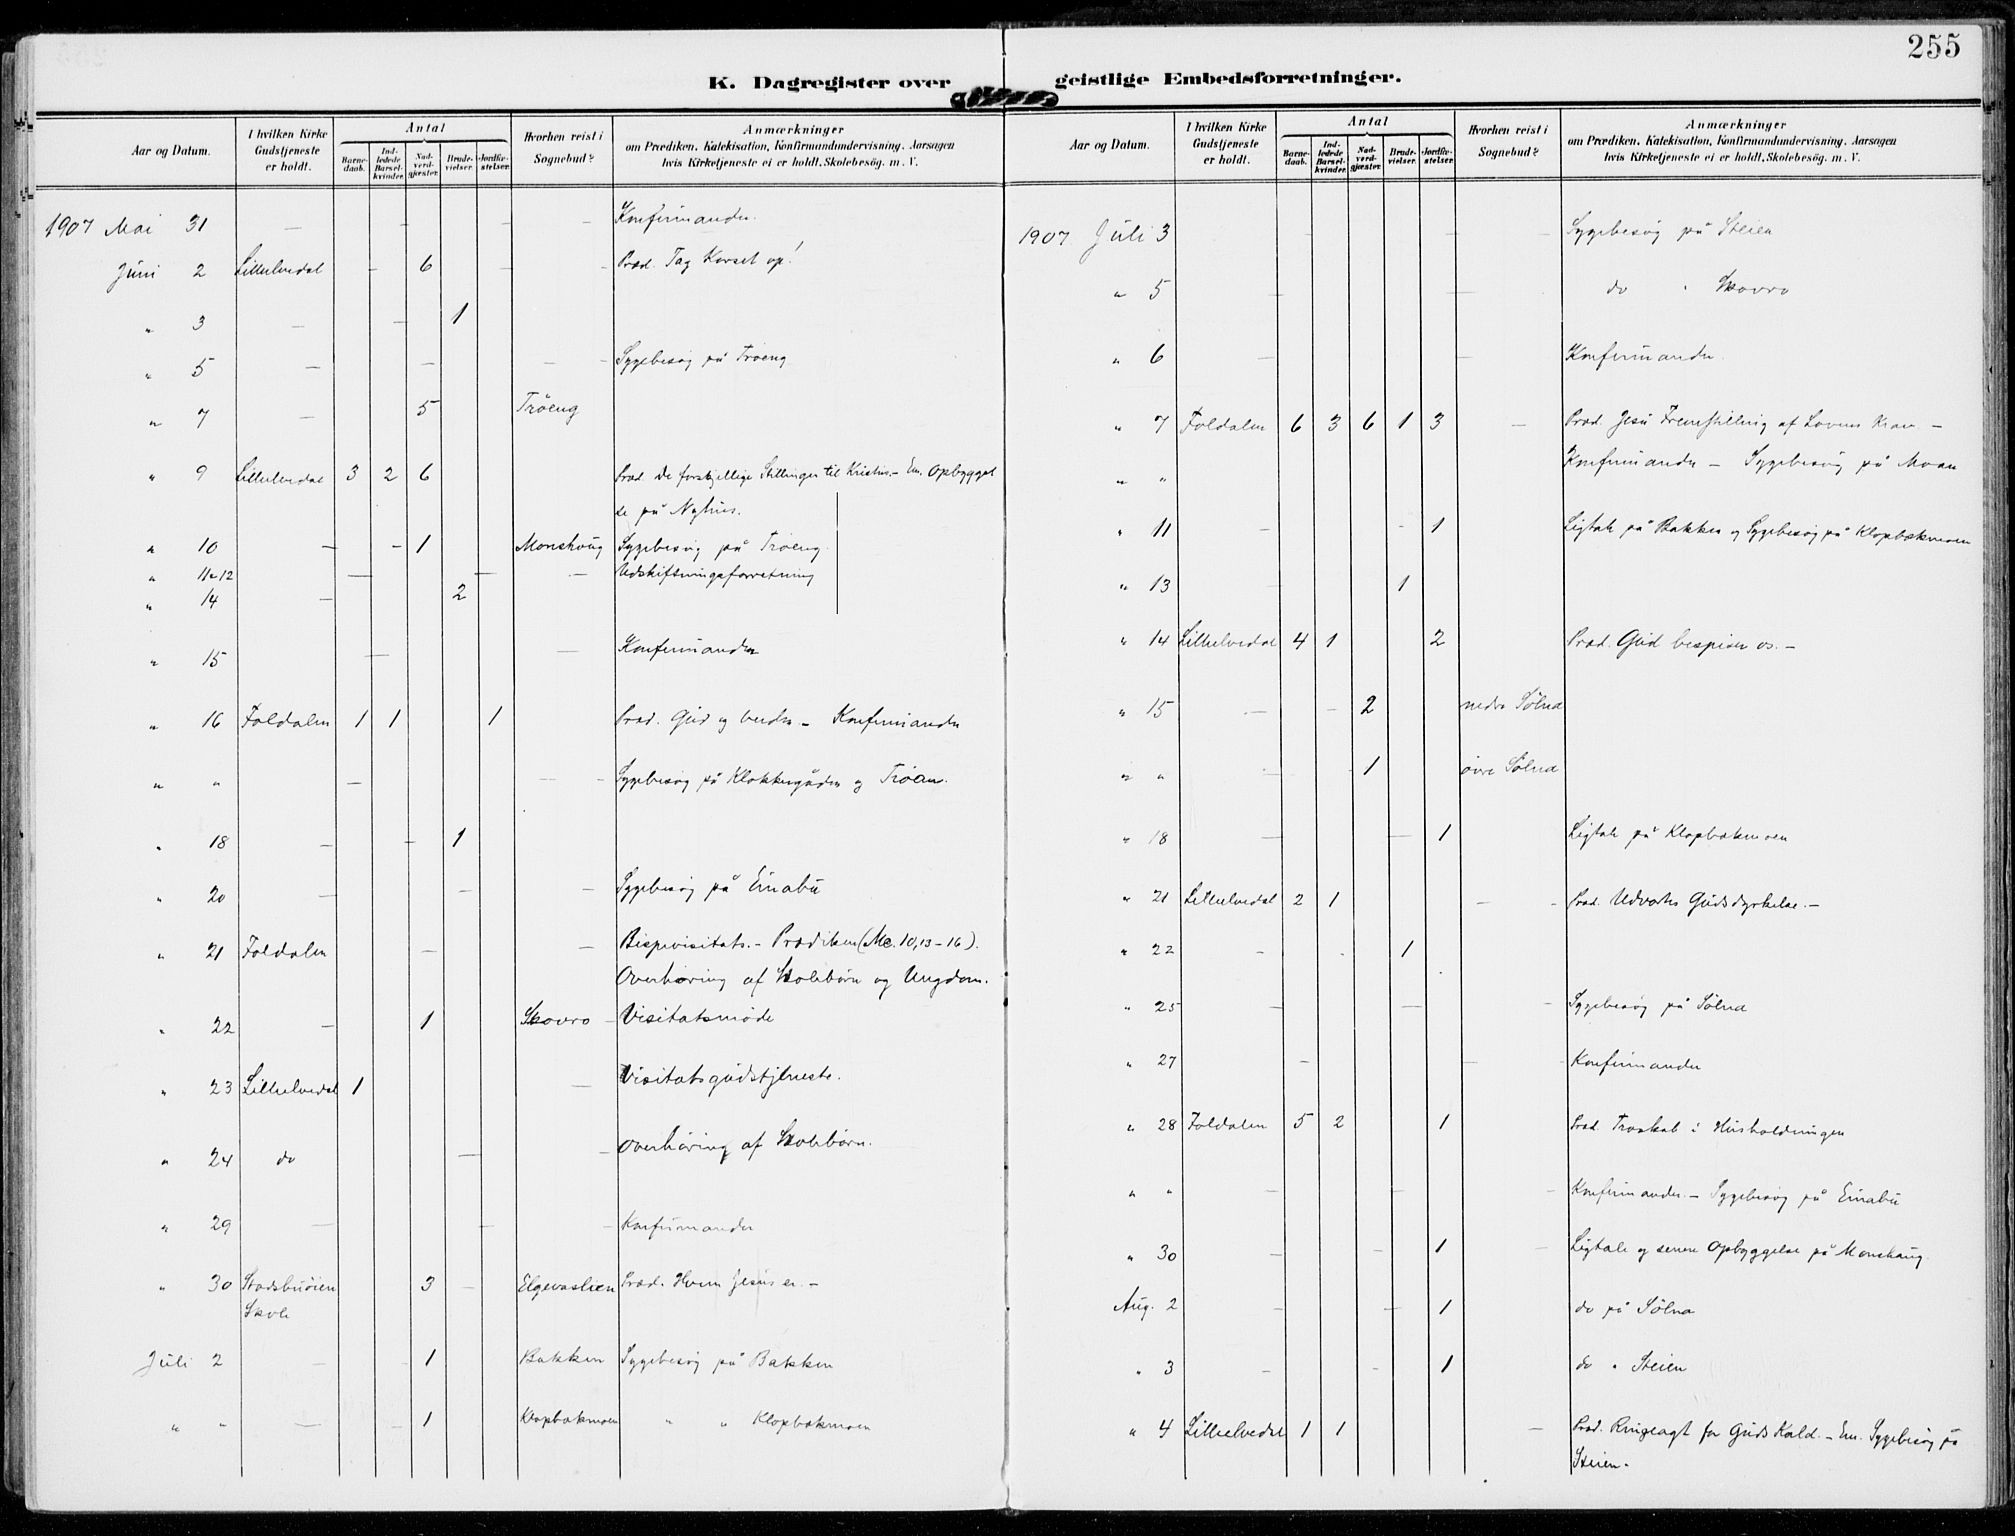 255
K. Dagregister over geistlige Embedsforretninger.
Aar og Datum.
I hvilken Kirke Gudstjeneste er holdt.
Antal
Barne-daab.
Ind-ledede Barsel-kvinder.
Nad-verd-gjæster.
Brude-vielser.
Jordfæ-stelser.
Hvorhen reist i Sognebud?
Anmærkninger
om Prædiken, Katekisation, Konfirmandundervisning, Aarsagen
hvis Kirketjeneste ei er holdt, Skolebesög, m. V.
1907 Mai 31 — — — — — Konfirmander.
Juni 2 Lillelvedal — 6 — — Præd. Tag Korset op!
" 3 — — 1
" 5 — — — — Sygebesøg på Trøeng
" 7 — 5 Trøeng
" 9 Lillelvedal 3 2 6 Præd. De forskjellige Stillinger til Kristus. — Em. Opbyggel
se på Nyhus.
" 10 — — 1 Monshoug Sygebesøg på Trøeng.
" 11-12 — — — Udskiftningsforretning
" 14 — 2
" 15 — — Konfirmander
" 16 Foldalen 1 1 1 Præd. Gud og verden — Konfirmander
" " — — — Sygebesøg på Klokkergården og Trøan.
" 18 — — 1
" 20 — — — Sygebesøg på Einabu
" 21 Foldalen — — Bispevisitats. — Prædiken (Mc. 10,13-16).
Overhøring af Skolebørn og Ungdom.
" 22 — 1 Skovro — Visitatsmøde
" 23 Lillelvedal 1 — Visitatsgudstjeneste.
" 24 do — — Overhøring af Skolebørn.
" 29 — — — Konfirmander
" 30 Stadsbuøien 3 — Elgevaslien Præd. Hvem Jesus er. —
Skole
Juli 2 — — 1 Bakken Sygebesøg på Bakken
" " — — 1 Klopbækmoen " " Klopbækmoen
Aar og Datum.
I hvilken Kirke Gudstjeneste er holdt.
Antal
Barne-daab.
Ind-ledede Barsel-kvinder.
Nad-verd-gjæster.
Brude-vielser.
Jordfæ-stelser.
Hvorhen reist i Sognebud?
Anmærkninger
om Prædiken, Katekisation, Konfirmandundervisning, Aarsagen
hvis Kirketjeneste ei er holdt, Skolebesög, m. V.
1907 Juli 3 — — — Sygebesøg på Steien
" 5 — — do " Skovro
" 6 — — Konfirmander.
" 7 Foldalen 6 3 6 1 3 — Præd. Jesu Fremstilling af Lovens Krav. —
" " Konfirmander — Sygebesøg på Moan
" 11 — - 1 Ligtale på Bakken og Sygebesøg på Klopbækmoen
" 13 — 1
" 14 Lillelvedal 4 1 2 Præd. Gud bespiser os. —
" 15 — — 2 nedre Sølna
" " — — 1 øvre Sølna
" 18 — — 1 Ligtale på Klopbækmoen
" 21 Lillelvedal 2 1 — - Præd. Udvortes Gudsdyrkelse. —
" 22 - - 1
" 25 — — - Sygebesøg på Sølna
" 27 — — - Konfirmander
" 28 Foldalen 5 2 1 Præd. Troskab i Husholdningen
" " — — - Konfirmander. — Sygebesøg på Einabu
" 30 — — 1 - Ligtale og senere Opbyggelse på Monshaug.
Aug. 2 — — 1 do på Sølna
" 3 — - 1 do " Steien
" 4 Lillelvedal 1 1 — Præd. Ringeagt for Guds Kald. — Em. Sygebesøg på
Steien.